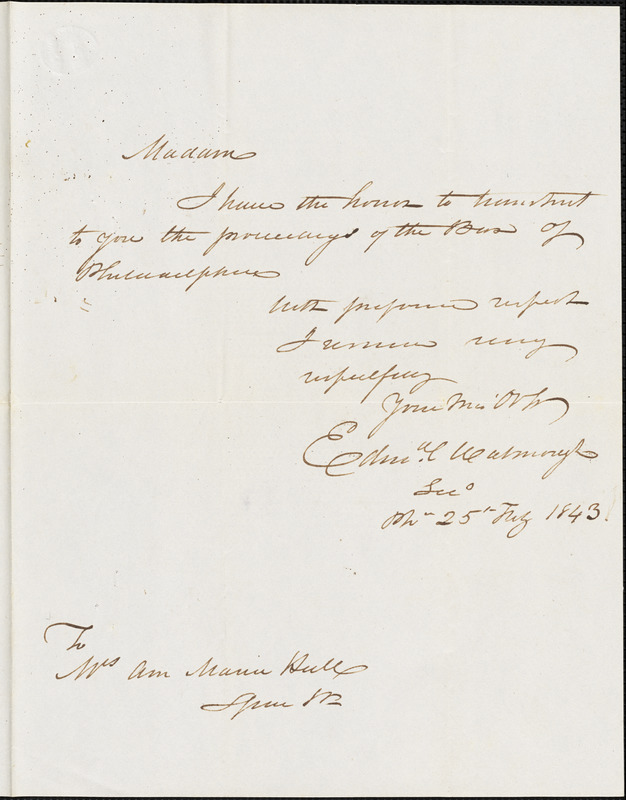 Madam
I have the honor to transmit
to you the proceedings of the Bar of
Philadelphia
With profound respect
I remain very
respectfully
Your Mo: Obt
Edmd. C Watmough
Secy
Pha 25th Feby 1843.
To
Mrs Ann Maria Hull
Spruce St